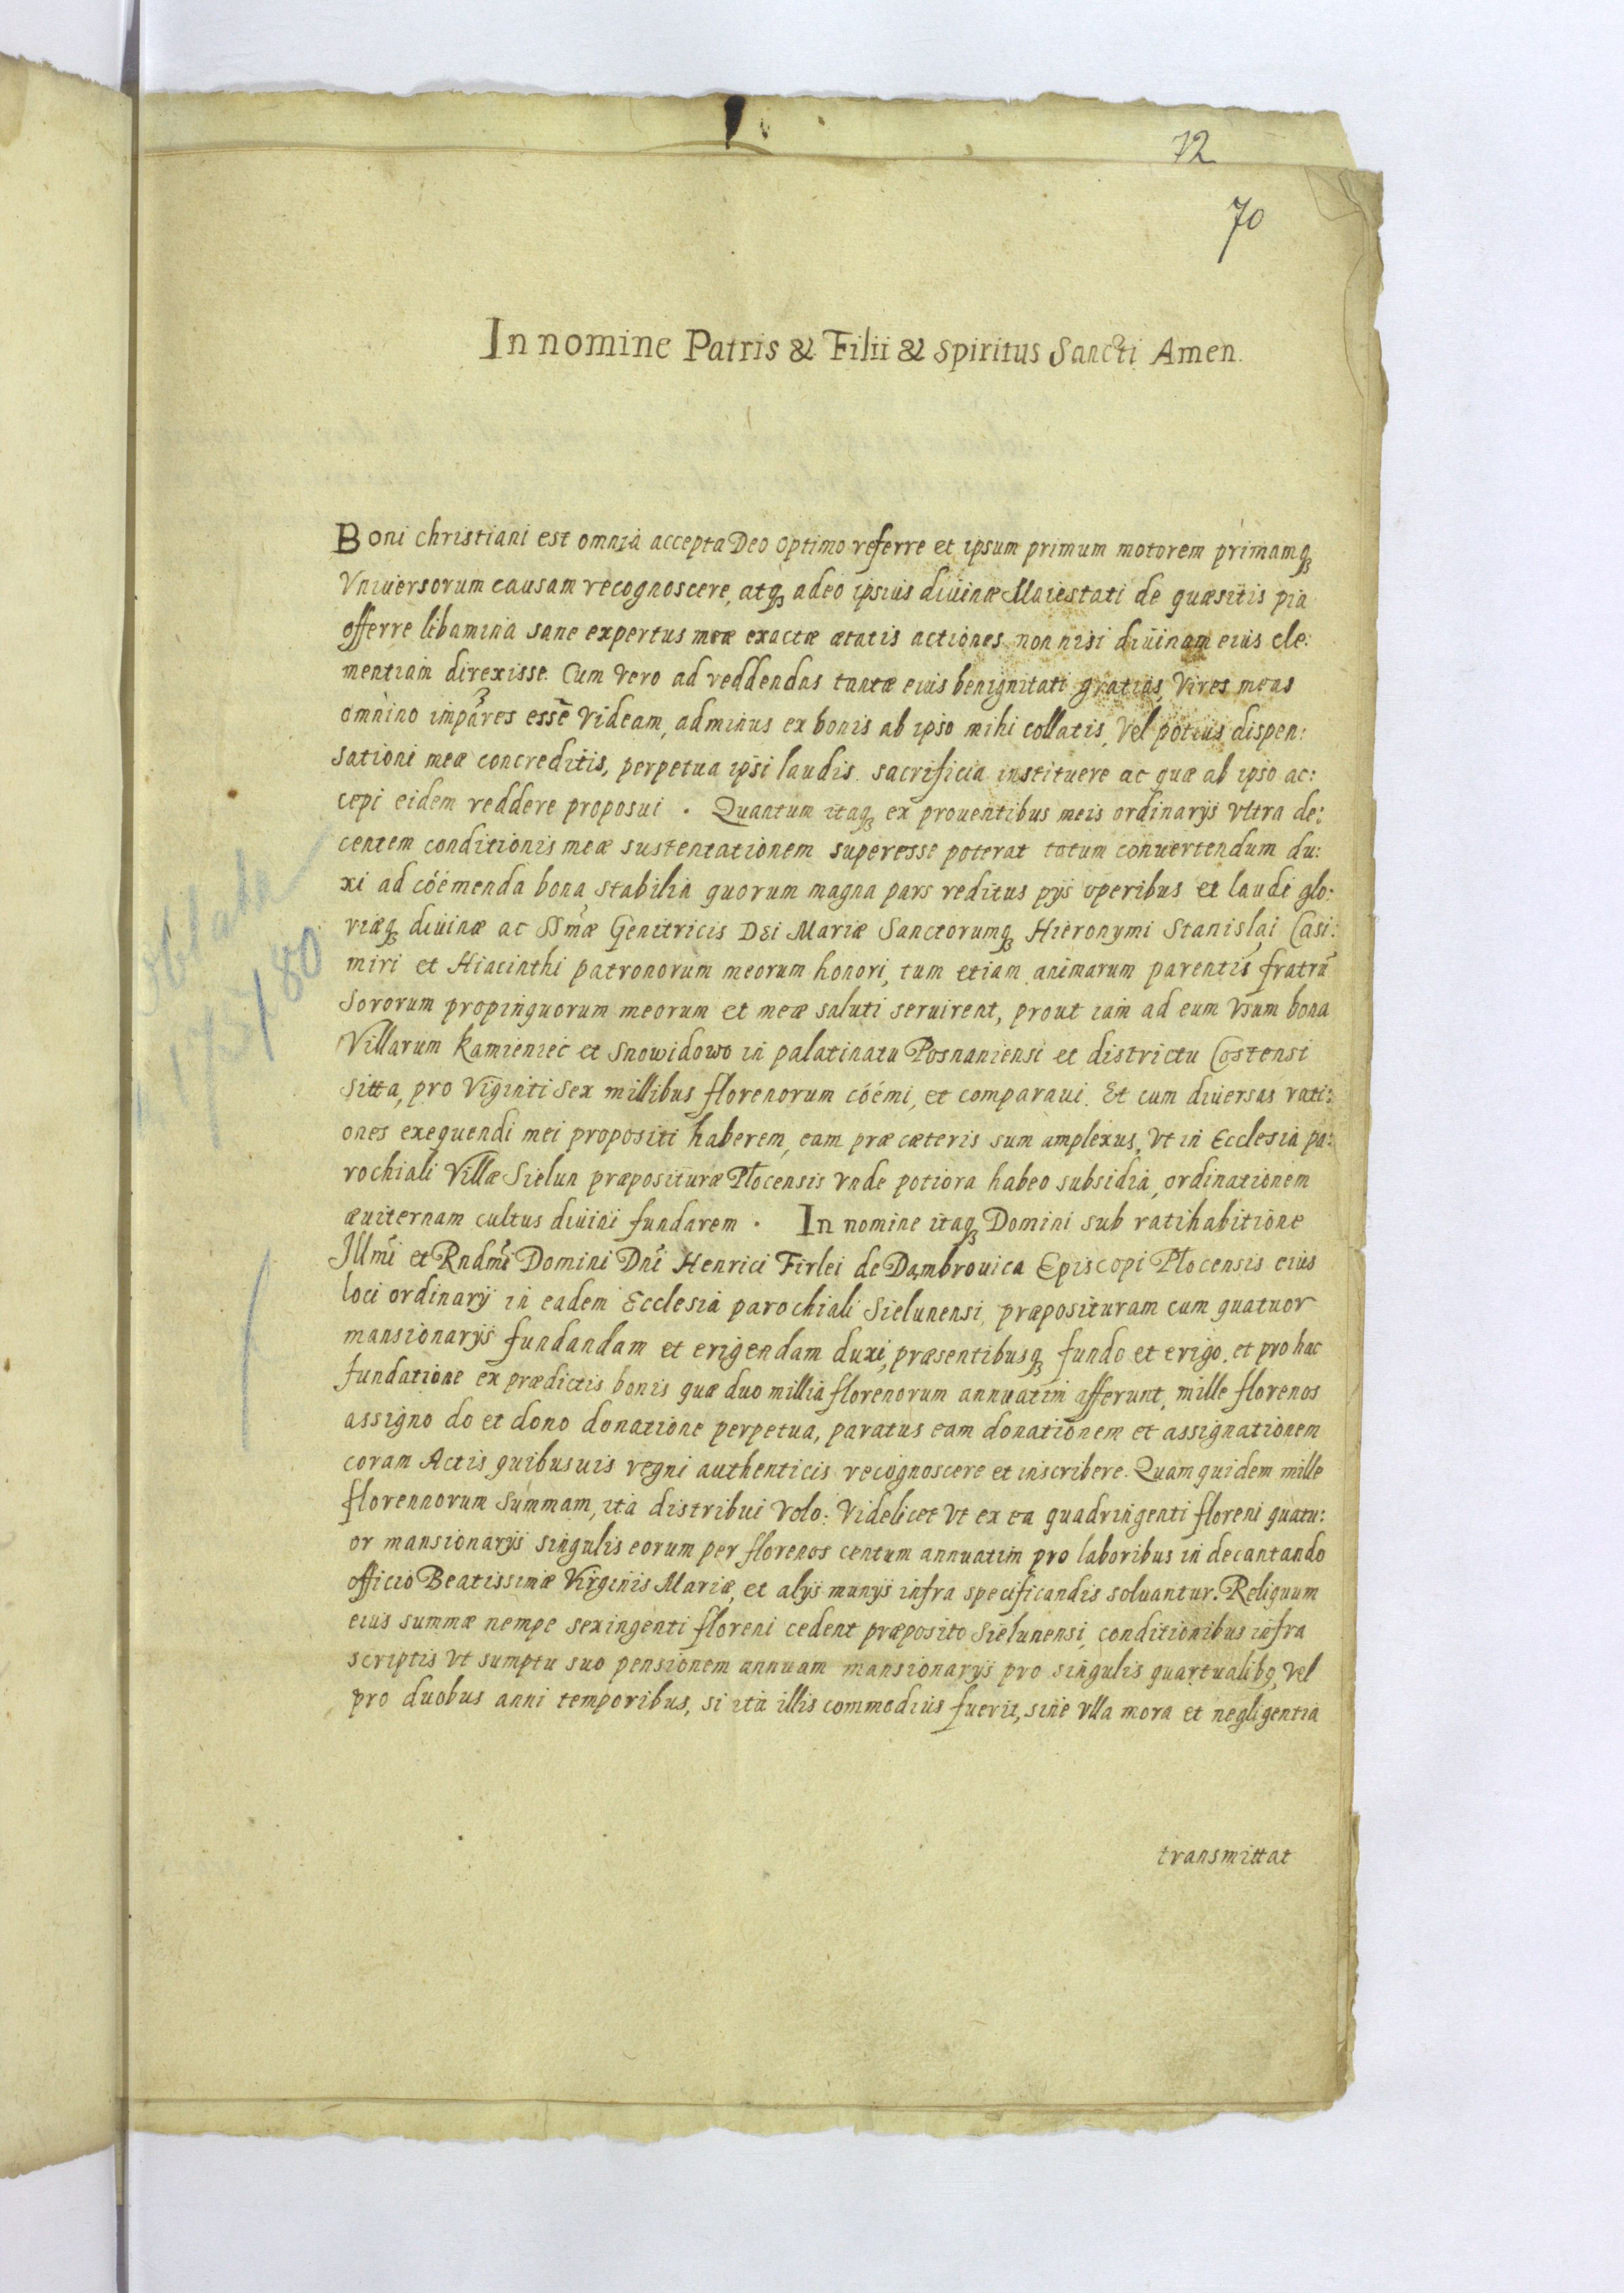 72
70
In nomine Patris & Filii & Spiritus Sancti Amen.
Boni christiani est omnia accepta Deo optimo referre et ipsum primum motorem primamqꝫ
Vniuersorum causam recognoscere, atqꝫ adeo ipsius diuinæ Maiestati de quæsitis pia
offerre libamina sane expertus meæ exactæ ætatis actiones non nisi diuinam eius cle:
mentiam direxisse. Cum vero ad reddendas tantæ eius benignitati gratias, vires meas
omnino impares esse videam, adminus ex bonis ab ipso mihi collatis, vel potius dispen:
sationi meæ concreditis, perpetua ipsi laudis sacrificia instituere ac quæ ab ipso ac:
cepi eidem reddere proposui . Quantum itaqꝫ ex prouentibus meis ordinarijs vltra de:
centem conditionis meæ sustentationem superesse poterat totum conuertendum du:
xi ad cóémenda bona stabilia quorum magna pars reditus pijs operibus et laudi glo:
riæqꝫ diuinæ ac SSmæ Genitricis Dei Mariæ Sanctorumqꝫ Hieronymi Stanislai Casi:
miri et Hiacinthi patronorum meorum honori, tum etiam animarum parentis fratrū
sororum propinquorum meorum et meæ saluti seruirent, prout iam ad eum vsum bona
Villarum Kamieniec et Snowidowo in palatinatu Posnaniensi et districtu Costensi
sitta, pro viginti sex millibus florenorum cóémi, et comparaui. Et cum diuersas rati:
ones exequendi mei propositi haberem, eam præ cæteris sum amplexus, vt in Ecclesia pa:
rochiali Villæ Sielun præposituræ Plocensis vnde potiora habeo subsidia, ordinationem
æuiternam cultus diuini fundarem . In nomine itaqꝫ Domini sub ratihabitione
Illmi et Rndmi Domini Dni Henrici Firlei de Dambrouica Episcopi Plocensis eius
loci ordinarij in eadem Ecclesia parochiali Sielunensi, præposituram cum quatuor
mansionarijs fundandam et erigendam duxi, præsentibusqꝫ fundo et erigo. et pro hac
fundatione ex prædictis bonis quæ duo millia florenorum annuatim afferunt, mille florenos
assigno do et dono donatione perpetua, paratus eam donationem et assignationem
coram Actis quibusuis regni authenticis recognoscere et inscribere. Quam quidem mille
florennorum summam, ita distribui volo: videlicet vt ex ea quadringenti floreni quatu:
or mansionarijs singulis eorum per florenos centum annuatim pro laboribus in decantando
officio Beatissimæ Virginis Mariæ, et alijs munijs infra specificandis soluantur. Reliquum
eius summæ nempe sexingenti floreni cedent præposito Sielunensi, conditionibus infra
scriptis vt sumptu suo pensionem annuam mansionarijs pro singulis quartualibꝫ, vel
pro duobus anni temporibus, si ita illis commodius fuerit, sine vlla mora et negligentia
transmittat
oblata